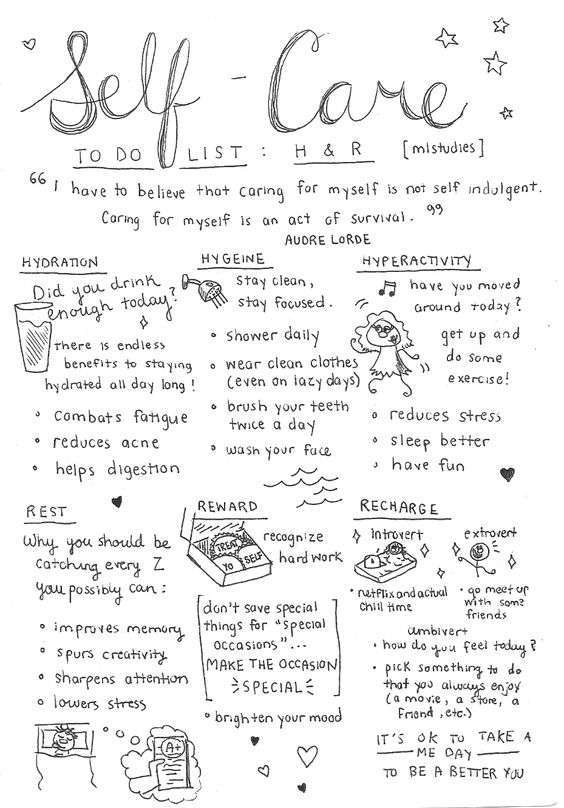 Self-Care
TO DO LIST : H & R [mistudies]
"I have to believe that caring for myself is not self indulgent.
Caring for myself is an act of survival."
AUDRE LORDE
HYDRATION
Did you drink
enough today?
There is endless
benefits to staying
hydrated all day long!
• combats fatigue
• reduces acne
• helps digestion
HYGEINE
Stay clean,
stay focused.
• shower daily
• wear clean clothes
(even on lazy days)
• brush your teeth
twice a day
• wash your face
HYPERACTIVITY
have you moved
around today?
get up and
do some
exercise!
• reduces stress
• sleep better
• have fun
REST
Why you should be
catching every Z
you possibly can:
• improves memory
• spurs creativity
• sharpens attention
• lowers stress
A+
REWARD
TREAT
YO SELF
recognize
hard work
[don't save special
things for "special
occasions"...
MAKE THE OCCASION
SPECIAL]
• brighten your mood
RECHARGE
introvert
• netflix and actual
chill time
extrovert
• go meet up
with some
friends
ambivert
• how do you feel today?
• pick something to do
that you always enjoy
(a movie, a store, a
friend, etc.)
IT'S OK TO TAKE A
ME DAY
TO BE A BETTER YOU